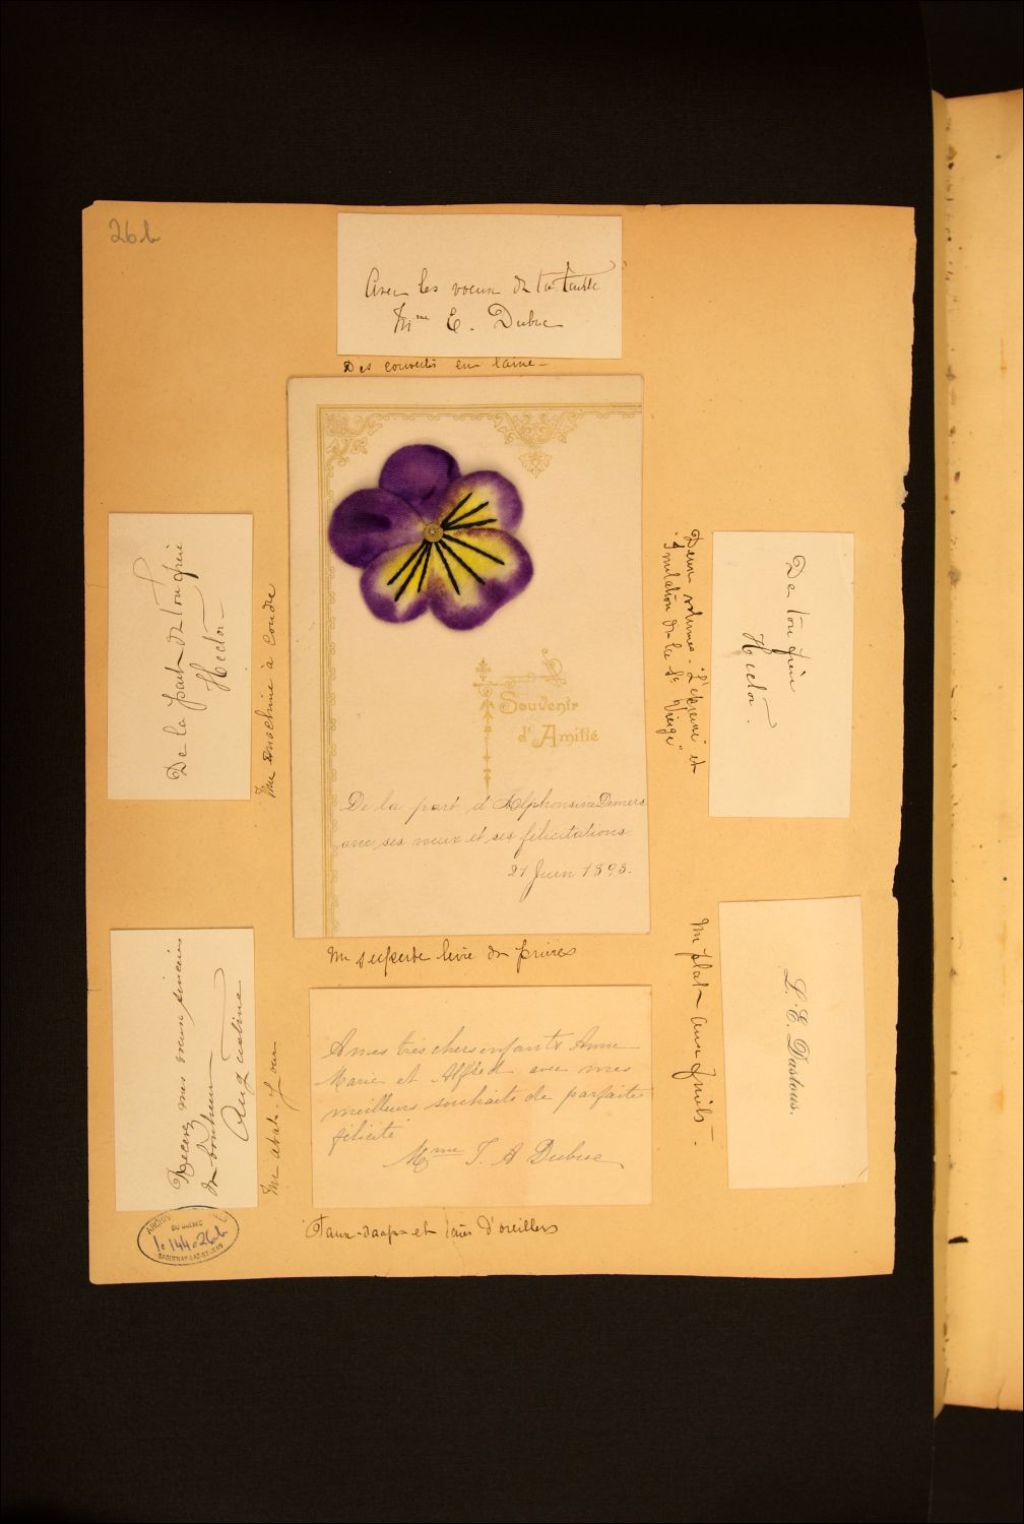 26b
Avec les voeux de ta tante
Mme E. Dubuc
Des couverts en laine -
De la part de ton frère
Hector -
Une machine à coudre
Souvenir
d'Amitié
De la part d'Alphonsine Demers
avec ses voeux et ses félicitations
21 Juin 1893.
Un superbe livre de prières
De ton frère
Hector.
Deux volumes - et
"Imitation de la Ste Vierge"
Recevez mes voeux sincères
de bonheur
Augustine
Un abat-jour
A mes très chers enfants Anne
Marie et Alfred avec mes
meilleurs souhaits de parfaite
félicité
Mme J. A Dubuc
Taies d'oreillers
L. E. Dastous.
Un plat aux fruits -
DU QUÉBEC
SAGUENAY-LAC-ST-JEAN